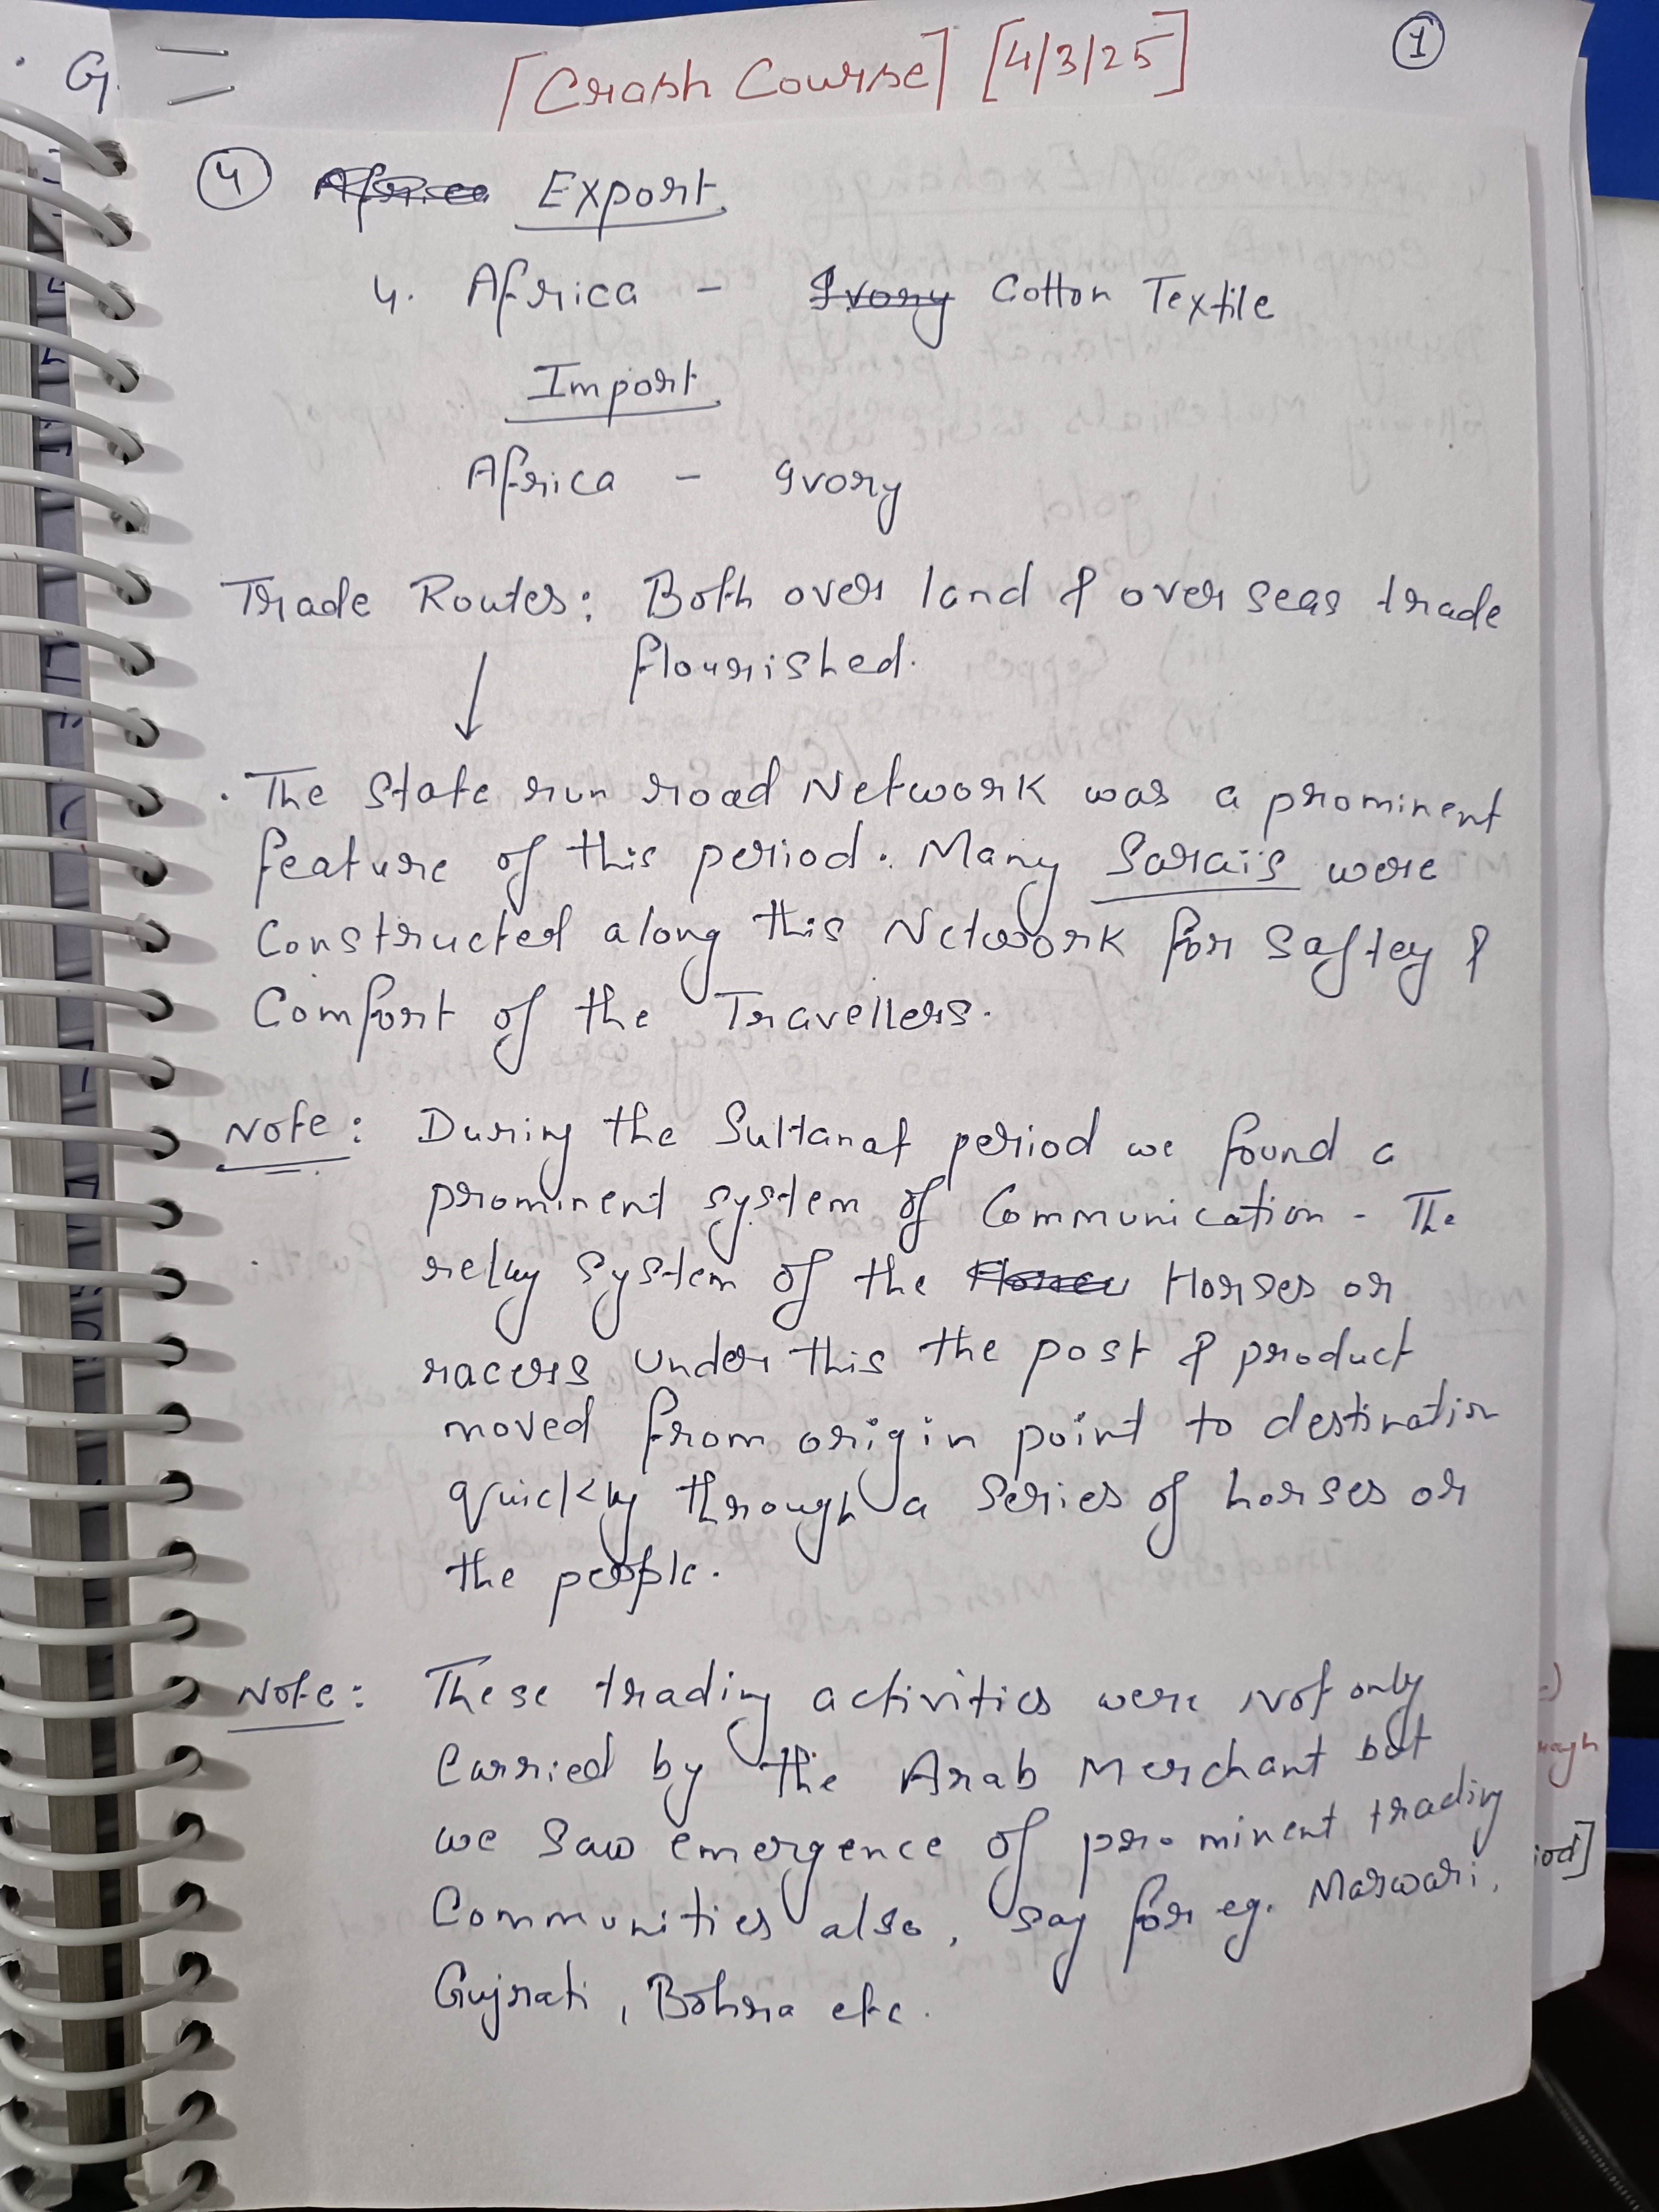 G.
[Crash Course] [4/3/25]
1
4 Export
4. Africa - Ivory Cotton Textile
Import
Africa - Ivory
Trade Routes: Both over land & over seas trade
flourished.
↓
· The State run road Network was a prominent
feature of this period. Many Saraiis were
Constructed along this Network for Saftey &
Comfort of the Travellers.
Note: During the Sultanat period we found a
prominent system of Communication - The
relay System of the Horses or
racers under this the post & product
moved from origin point to destination
quickly through a Series of horses or
the people.
Note: These trading activities were Not only
Carried by the Arab Merchant but
we Saw emergence of prominent trading
Communities also, say for eg. Marwari,
Gujrati, Bohra etc.
iod]